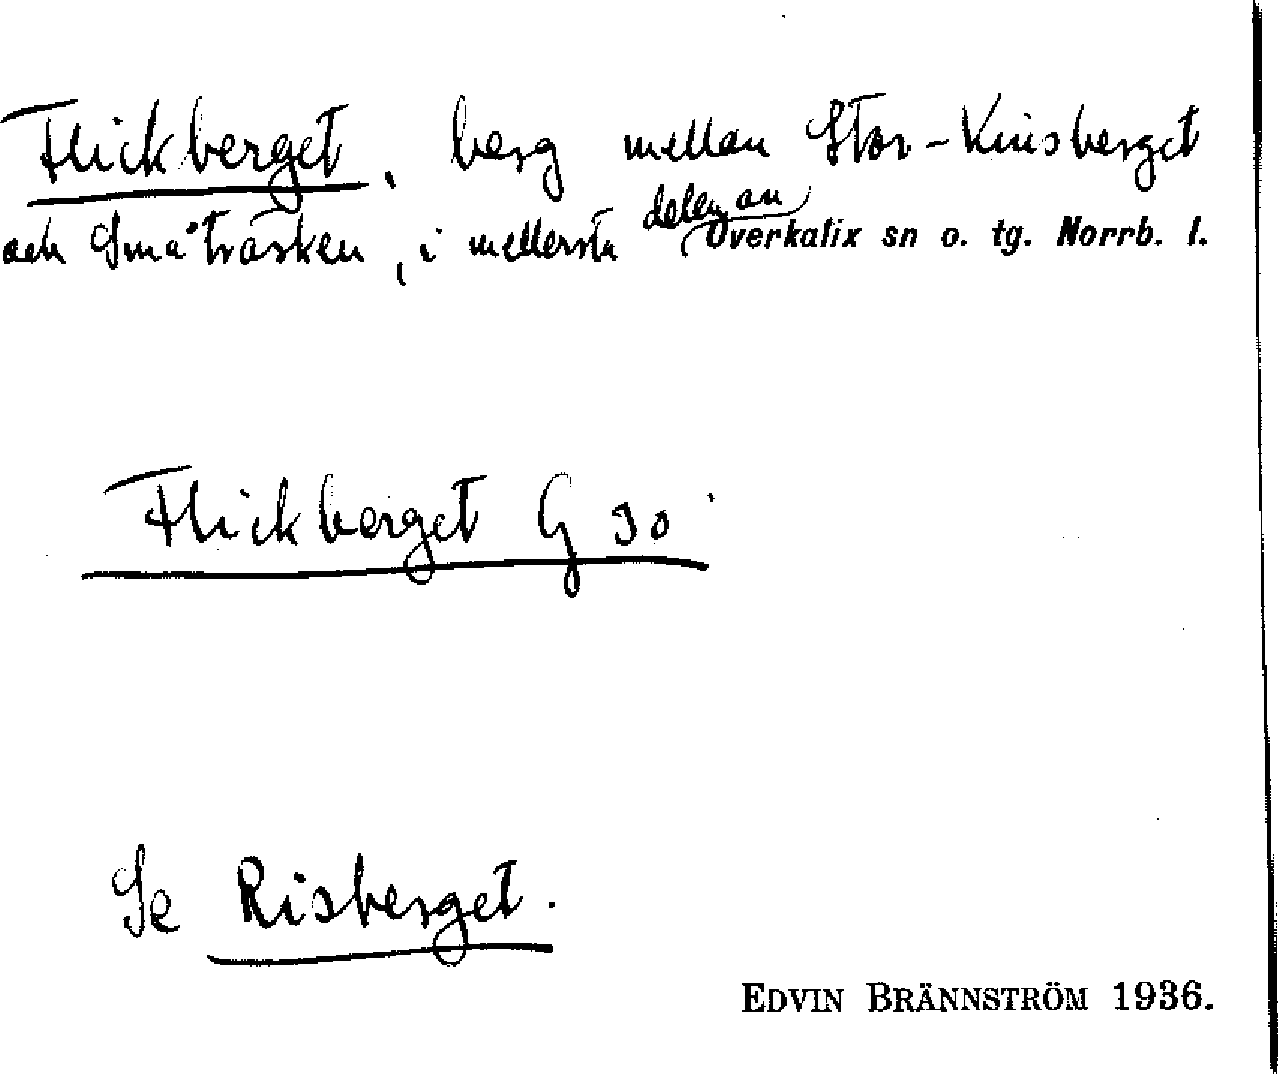 Flickberget, berg mellan Stor-Kvisberget
och Småträsken, i mellersta delen av Överkalix sn o. tg. Norrb. l.
Flickberget G 30
Se Risberget.
EDVIN BRÄNNSTRÖM 1936.